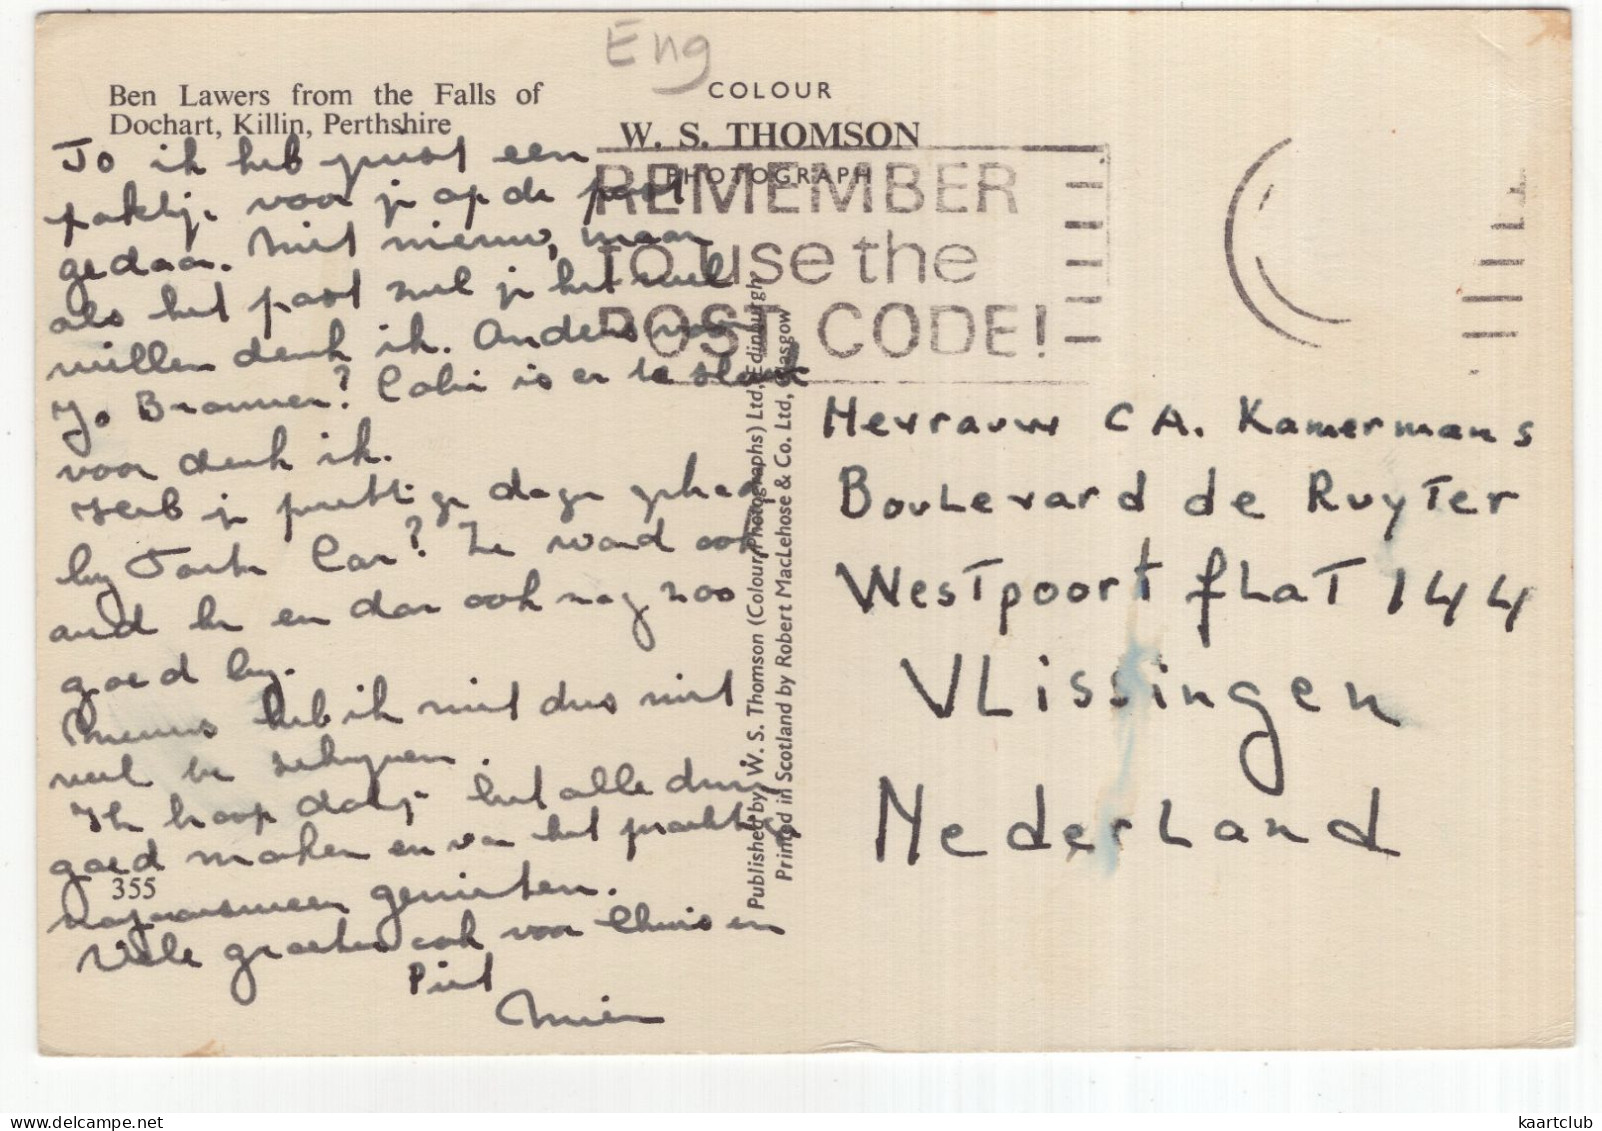 Eng
Ben Lawers from the Falls of
Dochart, Killin, Perthshire
COLOUR
W. S. THOMSON
PHOTOGRAPH
REMEMBER
TO use the
POST CODE!
Jo ik heb juist een
paketje voor je op de post
gedaan. Niet nieuw, maar
als het past zul je het wel
willen denk ik. Anders van
Jo Brouwer? is er te slank
voor denk ik.
Heb je prettige dagen gehad
by Tante Cor? Ze word ook
oud he en dan ook nog zoo
goed by.
Nieuws heb ik niet dus niet
veel te schryven.
Ik hoop dat je het alle drie
goed maken en van het prachtige
najaarsweer genieten.
Vele groeten ook voor Thuis en
Piet
Mien
355
Published by W. S. Thomson (Colour Photographs) Ltd, Edinburgh
Printed in Scotland by Robert MacLehose & Co. Ltd, Glasgow
Mevrauw C A. Kamermans
Boulevard de Ruyter
Westpoort flat 144
Vlissingen
Nederland
www.delcampe.net
kaartclub